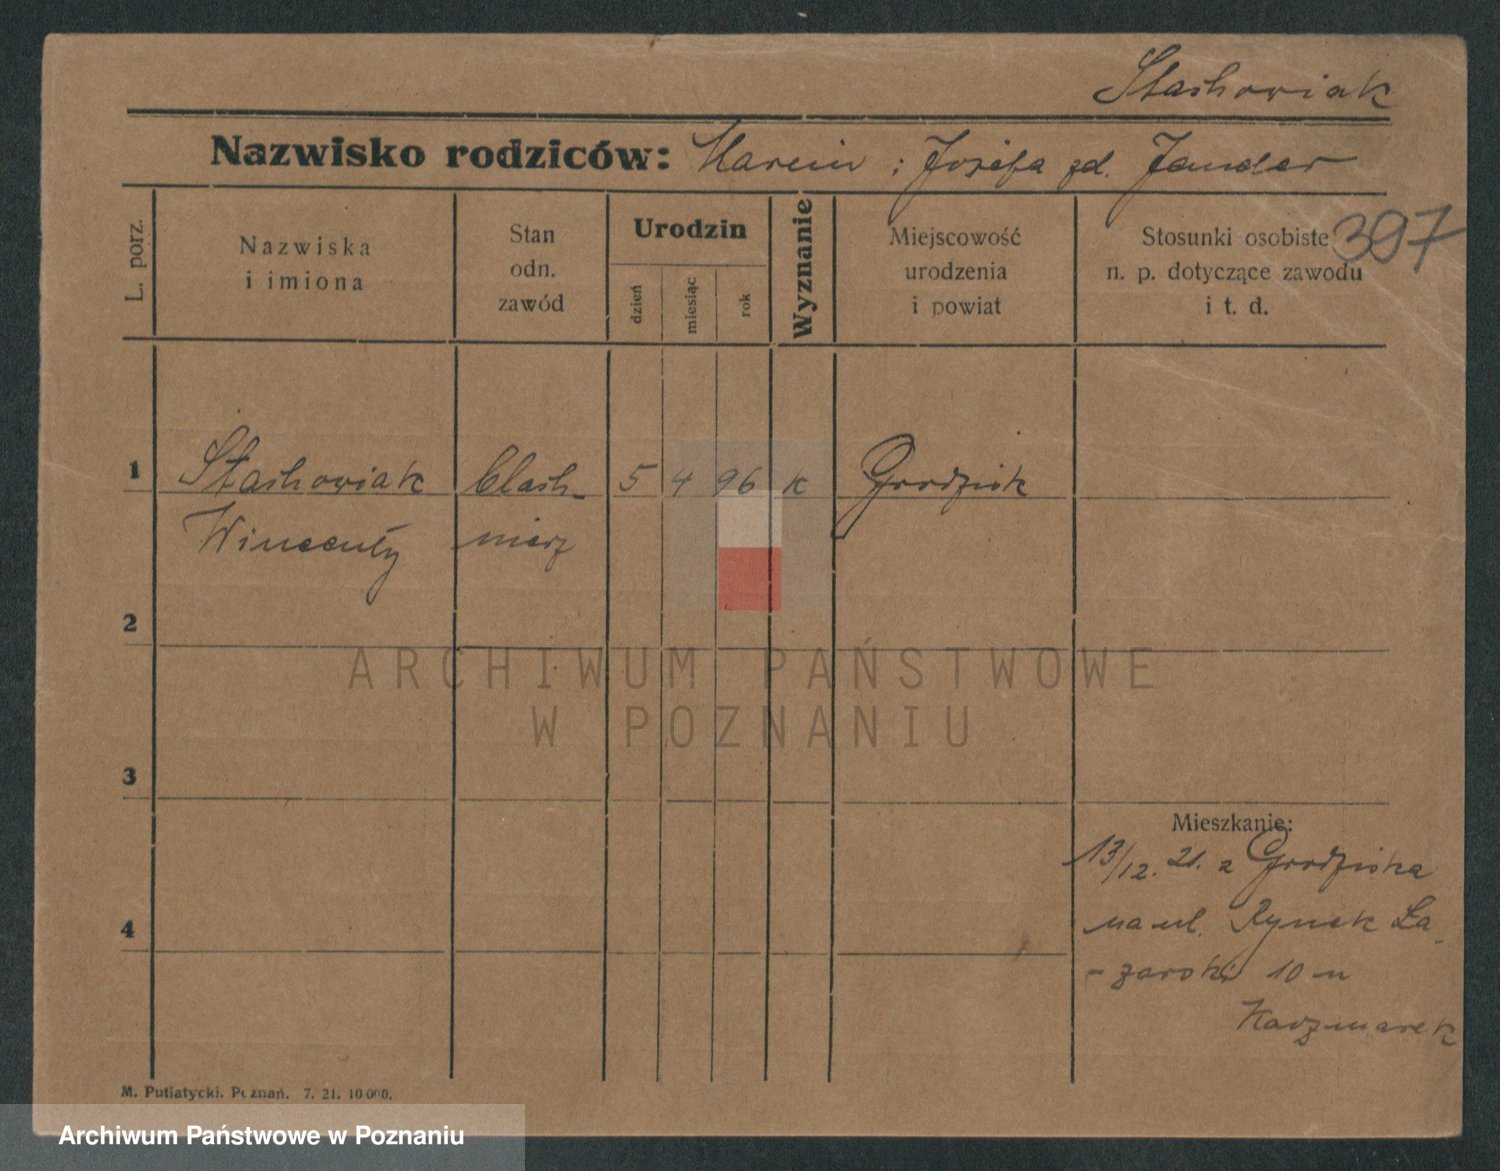 Stachowiak
Nazwisko rodziców: Marcin i Józefa zd. Jander
397
L. porz.
Nazwiska
i imiona
Stan
odn.
zawód
Urodzin
dzień
miesiąc
rok
Wyznanie
Miejscowość
urodzenia
i powiat
Stosunki osobiste
n. p. dotyczące zawodu
i t. d.
1 Stachowiak Blach- 5 4 96 k Grodzisk
Wincenty nierz
2
ARCHIWUM PAŃSTWOWE
W POZNANIU
3
Mieszkanie:
13/12. 21. z Grodziska
4
na ul. Rynek Ła-
-zarski 10 n
Kaczmarek
M. Putiatycki, Poznań. 7. 21. 10 000.
Archiwum Państwowe w Poznaniu